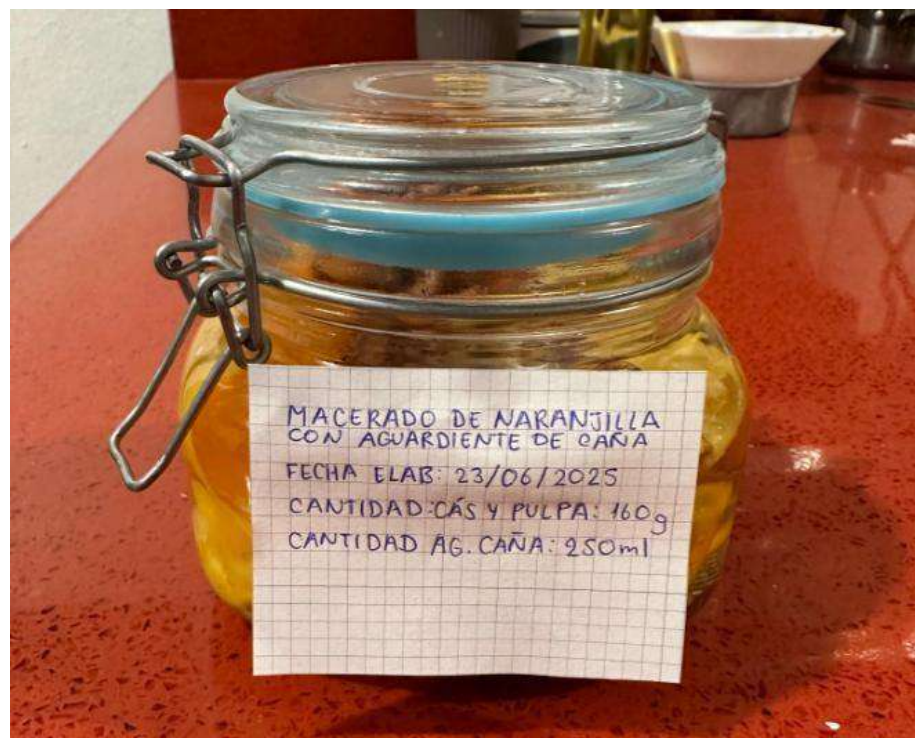 MACERADO DE NARANJILLA
CON AGUARDIENTE DE CAÑA
FECHA ELAB: 23/06/2025
CANTIDAD:CÁS Y PULPA: 160g
CANTIDAD AG. CAÑA: 250ml